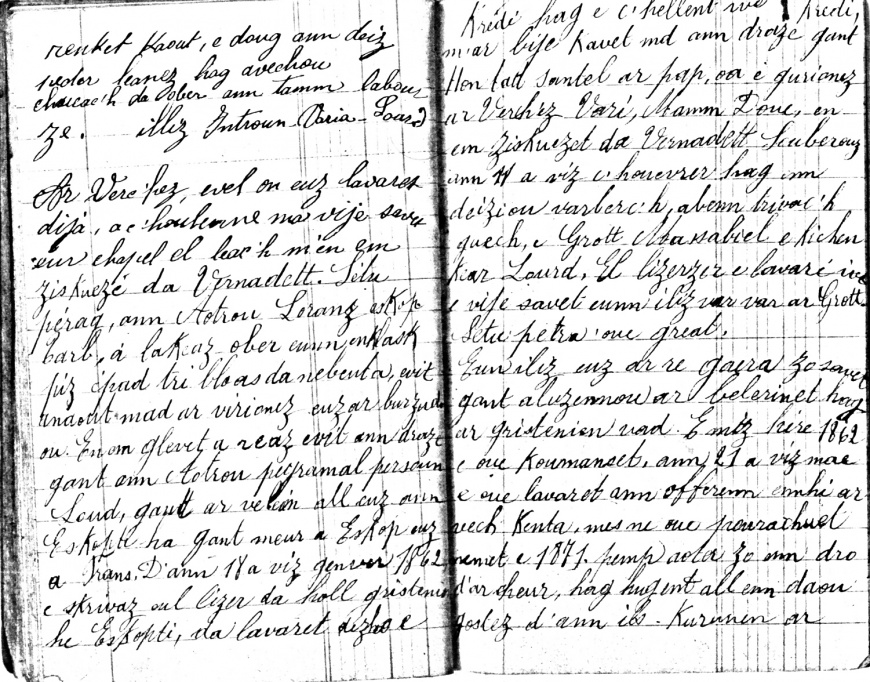 renket kaout, e doug ann deiz
hag avechou
da ober ann tamm labour
ze. illiz Introun-Varia-Lourd
Ar Verc'hez, evel on euz lavaret
dija, a c'houlenne ma vije savet
eur chapel el leac'h m'en em
ziskuezé da Vernadett. Setu
pérag, ann Aotrou Loranz eskop
Tarb, a lakeaz ober eunn enklask
piz épad tri bloas da nebeuta, evit
anaout mad ar virionez euz ar burzudou
ou. En om glevet a reaz evit ann draze
gant ann Aotrou peyramal persoun
Lourd, gant ar veleien all euz ann
Eskopti ha gant meur a Eskop euz
a Frans. D'ann 18 a viz genver 1862
e skrivaz eul lizer da holl gristenien
he Eskopti, da lavaret dezho e
Krédi hag e c'hellent Krédi,
m'ar bije Kavet mad ann draze gant
Hon tad santel ar pap, oa é gwrionez
ar Verc'hez Vari, Mamm Doue, en
em ziskuezet da Vernadett Souberouz
ann 11 a viz c'houevrer hag ann
deiziou varlerc'h, abenn trivac'h
guech, e Grott Massabiel e kichen
kear Lourd. El lizerzer e lavaré ivez
e vije savet eunn iliz var var ar Grott.
Setu petra oue great.
Eun iliz euz ar re gaera zo savet
gant aluzennou ar belerinet hag
ar gristenien vad. E miz héré 1862
e oue koumanset, ann 21 a viz mae
e oue lavaret ann offerenn ennhi ar
vech kenta, mes ne oue peurachuet
nemet e 1871. pemp aoter zo enn dro
d'ar c'heur, hag hugent all enn daou
gostez d'ann ilis. Kurunen ar